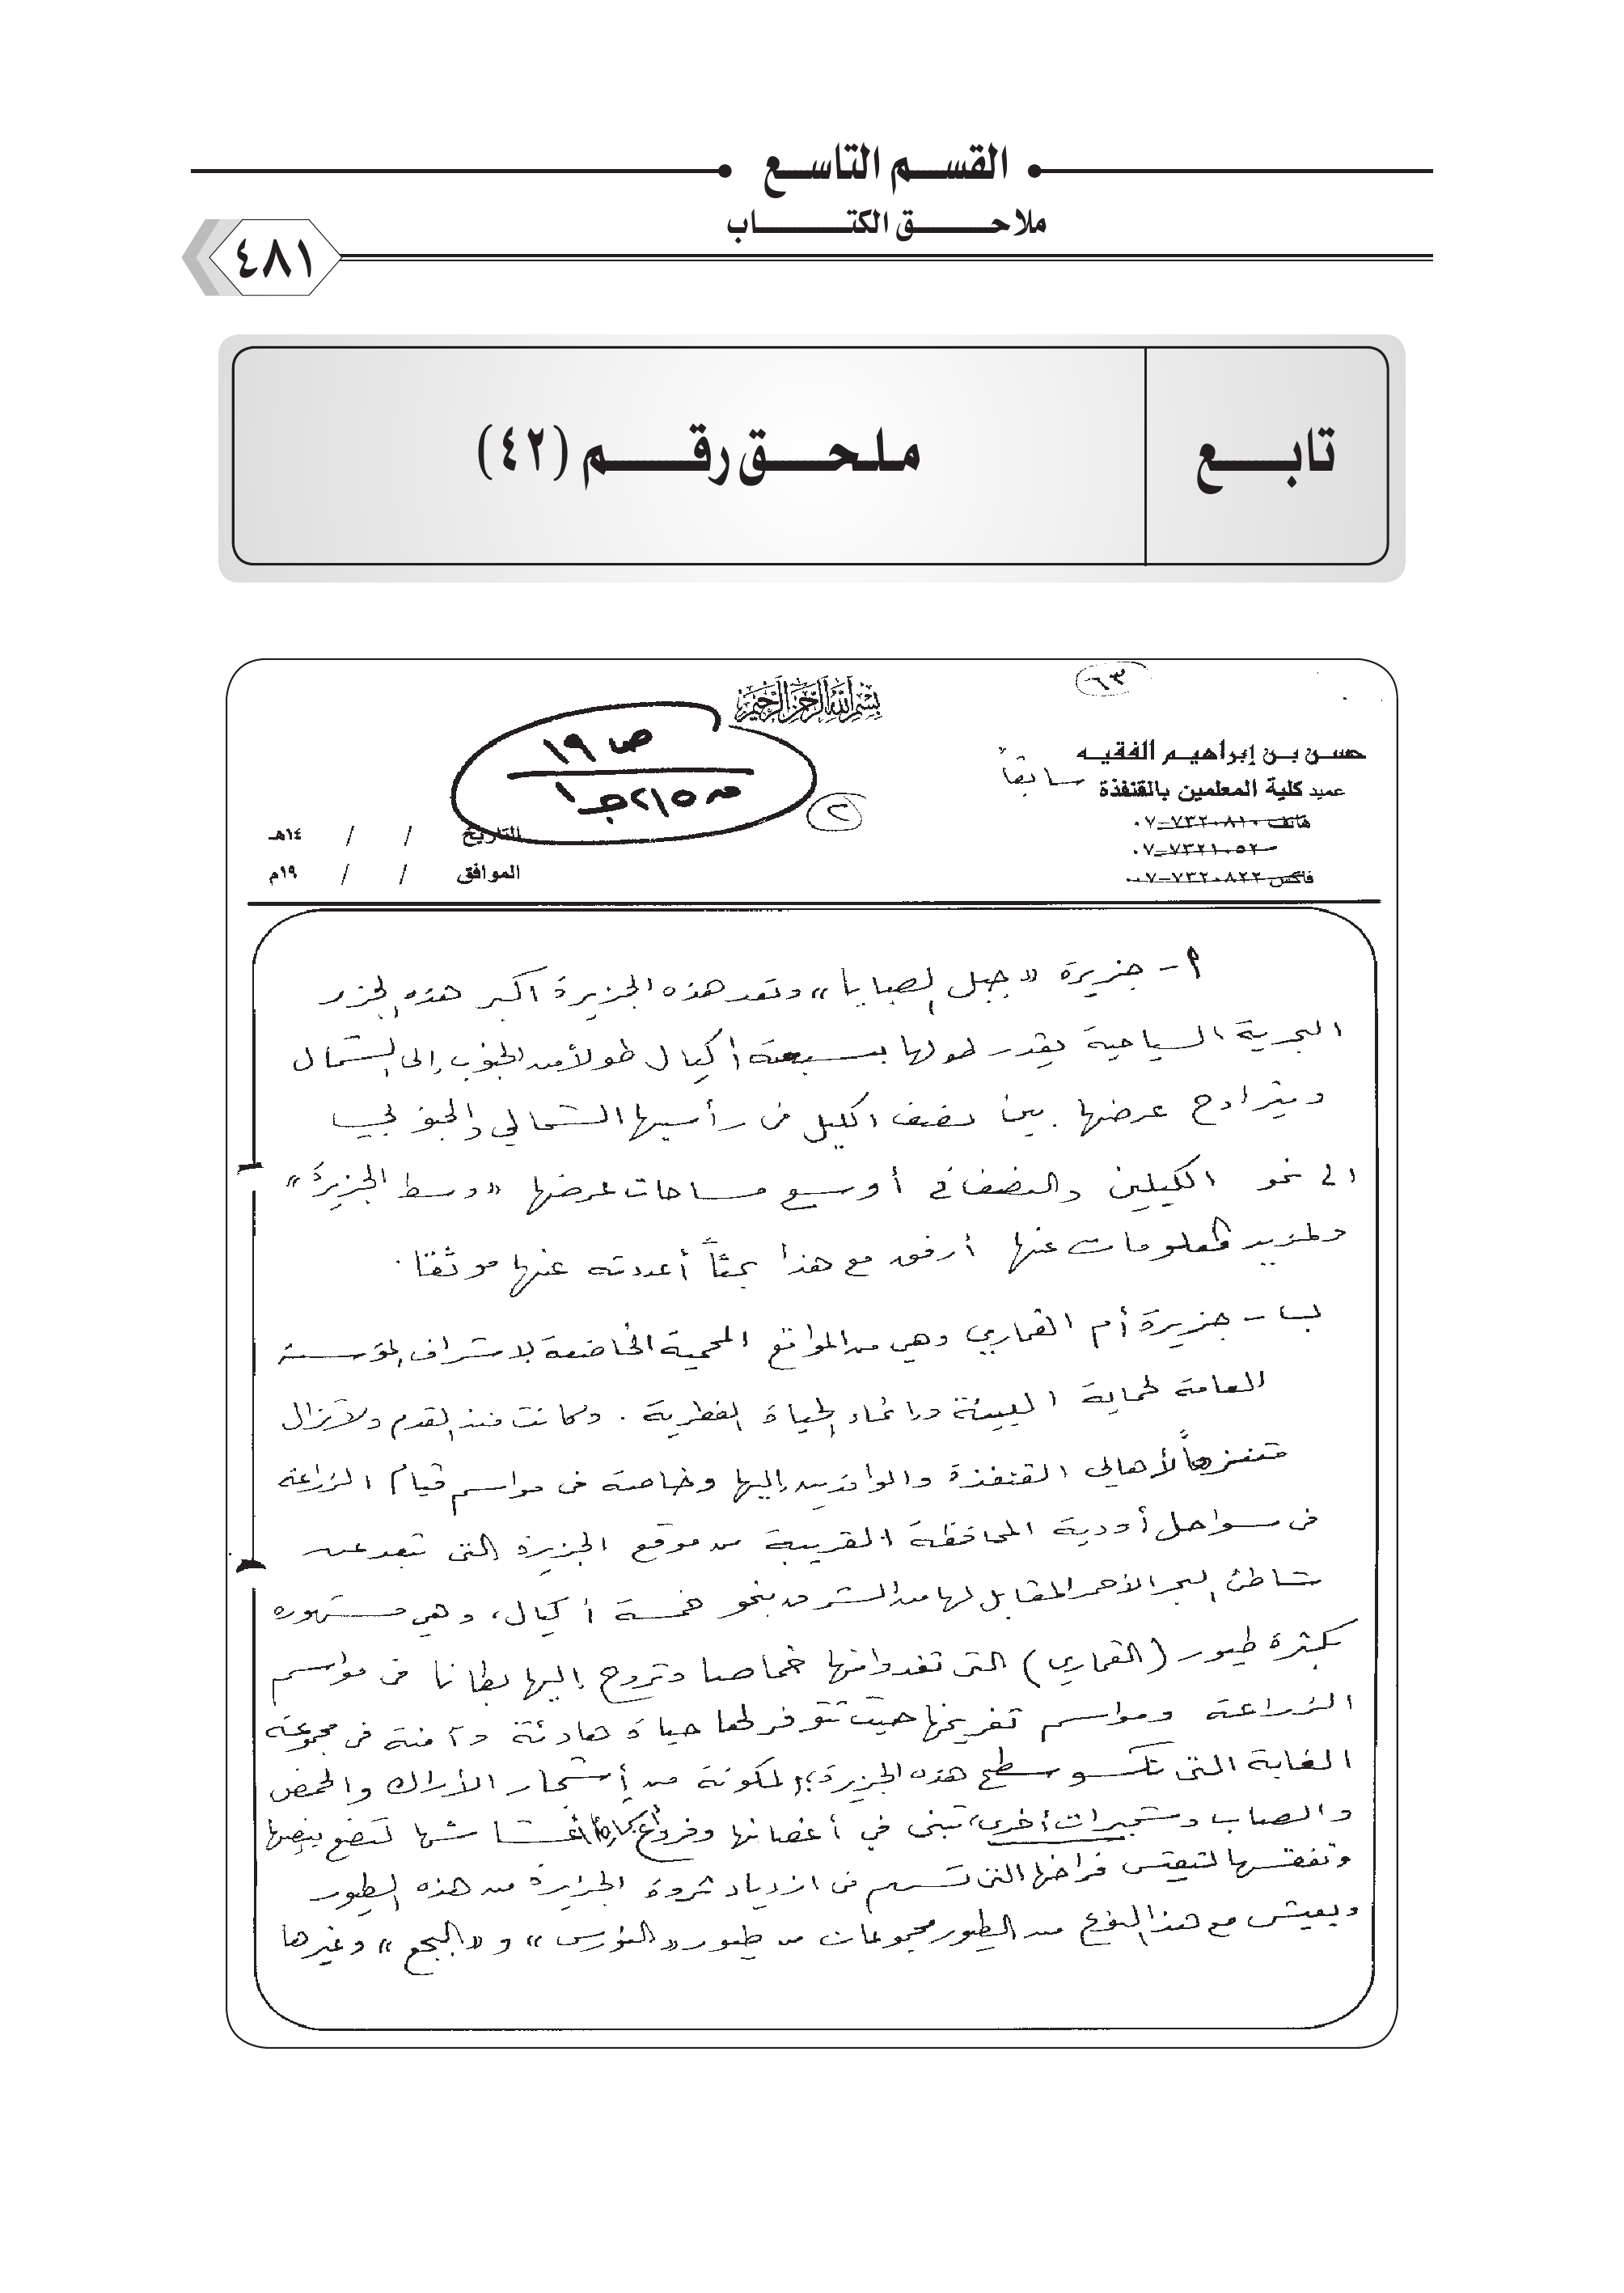 القسم التاسع
ملاحق الكتاب
٤٨١
تابع
ملحق رقم (٤٢)
٦٣
بسم الله الرحمن الرحيم
حسن بن إبراهيم الفقيه
عميد كلية المعلمين بالقنفذة سابقاً
هاتف ٧٣٢٠٨١٠-٠٧
٧٣٢١٠٥٢-٠٧
فاكس ٧٣٢٠٨٢٢-٠٧
ص ١٩
من ٢١٥ جـ ١
٢
التاريخ / / ١٤هـ
الموافق / / ١٩م
أ - جزيرة «جبل الصبايا» وتعد هذه الجزيرة أكبر هذه الجزر
البحرية السياحية يقدر طولها بسبعة أكيال طولاً من الجنوب إلى الشمال
ويتراوح عرضها بين نصف الكيل في رأسيها الشمالي والجنوبي
الى نحو الكيلين والنصف في أوسع مساحات عرضها «وسط الجزيرة»
ولمزيد معلومات عنها أرفق مع هذا بحثاً أعددته عنها موثقا.
ب - جزيرة أم القماري وهي من المواقع المحمية الخاضعة لاشراف المؤسسة
العامة لحماية البيئة وانماء الحياة الفطرية. وكانت منذ القدم ولاتزال
متنزهاً لأهالي القنفذة والوافدين إليها وخاصة في مواسم قيام الزراعة
في سواحل أودية المحافظة القريبة من موقع الجزيرة التي تبعد عن
شاطئ البحر الأحمر المقابل لها من الشرق بنحو خمسة أكيال، وهي مشهورة
بكثرة طيور (القماري) التي تغدو منها خماصا وتروح إليها بطانا في مواسم
الزراعة ومواسم تفريخها حيث تتوفر لها حياة هادئة وآمنة في مجموعة
الغابة التي تكسو سطح هذه الجزيرة؛ المكونة من أشجار الأراك والحمض
والصاب وشجيرات أخرى، تبني في أغصانها وفروع أشجارها أعشاشها لتضع بيضها
وتفقسها لتعيش فراخها التي تسهم في ازدياد ثروة الجزيرة من هذه الطيور
ويعيش مع هذا النوع من الطيور مجموعات من طيور «النورس» و«البجع» وغيرها